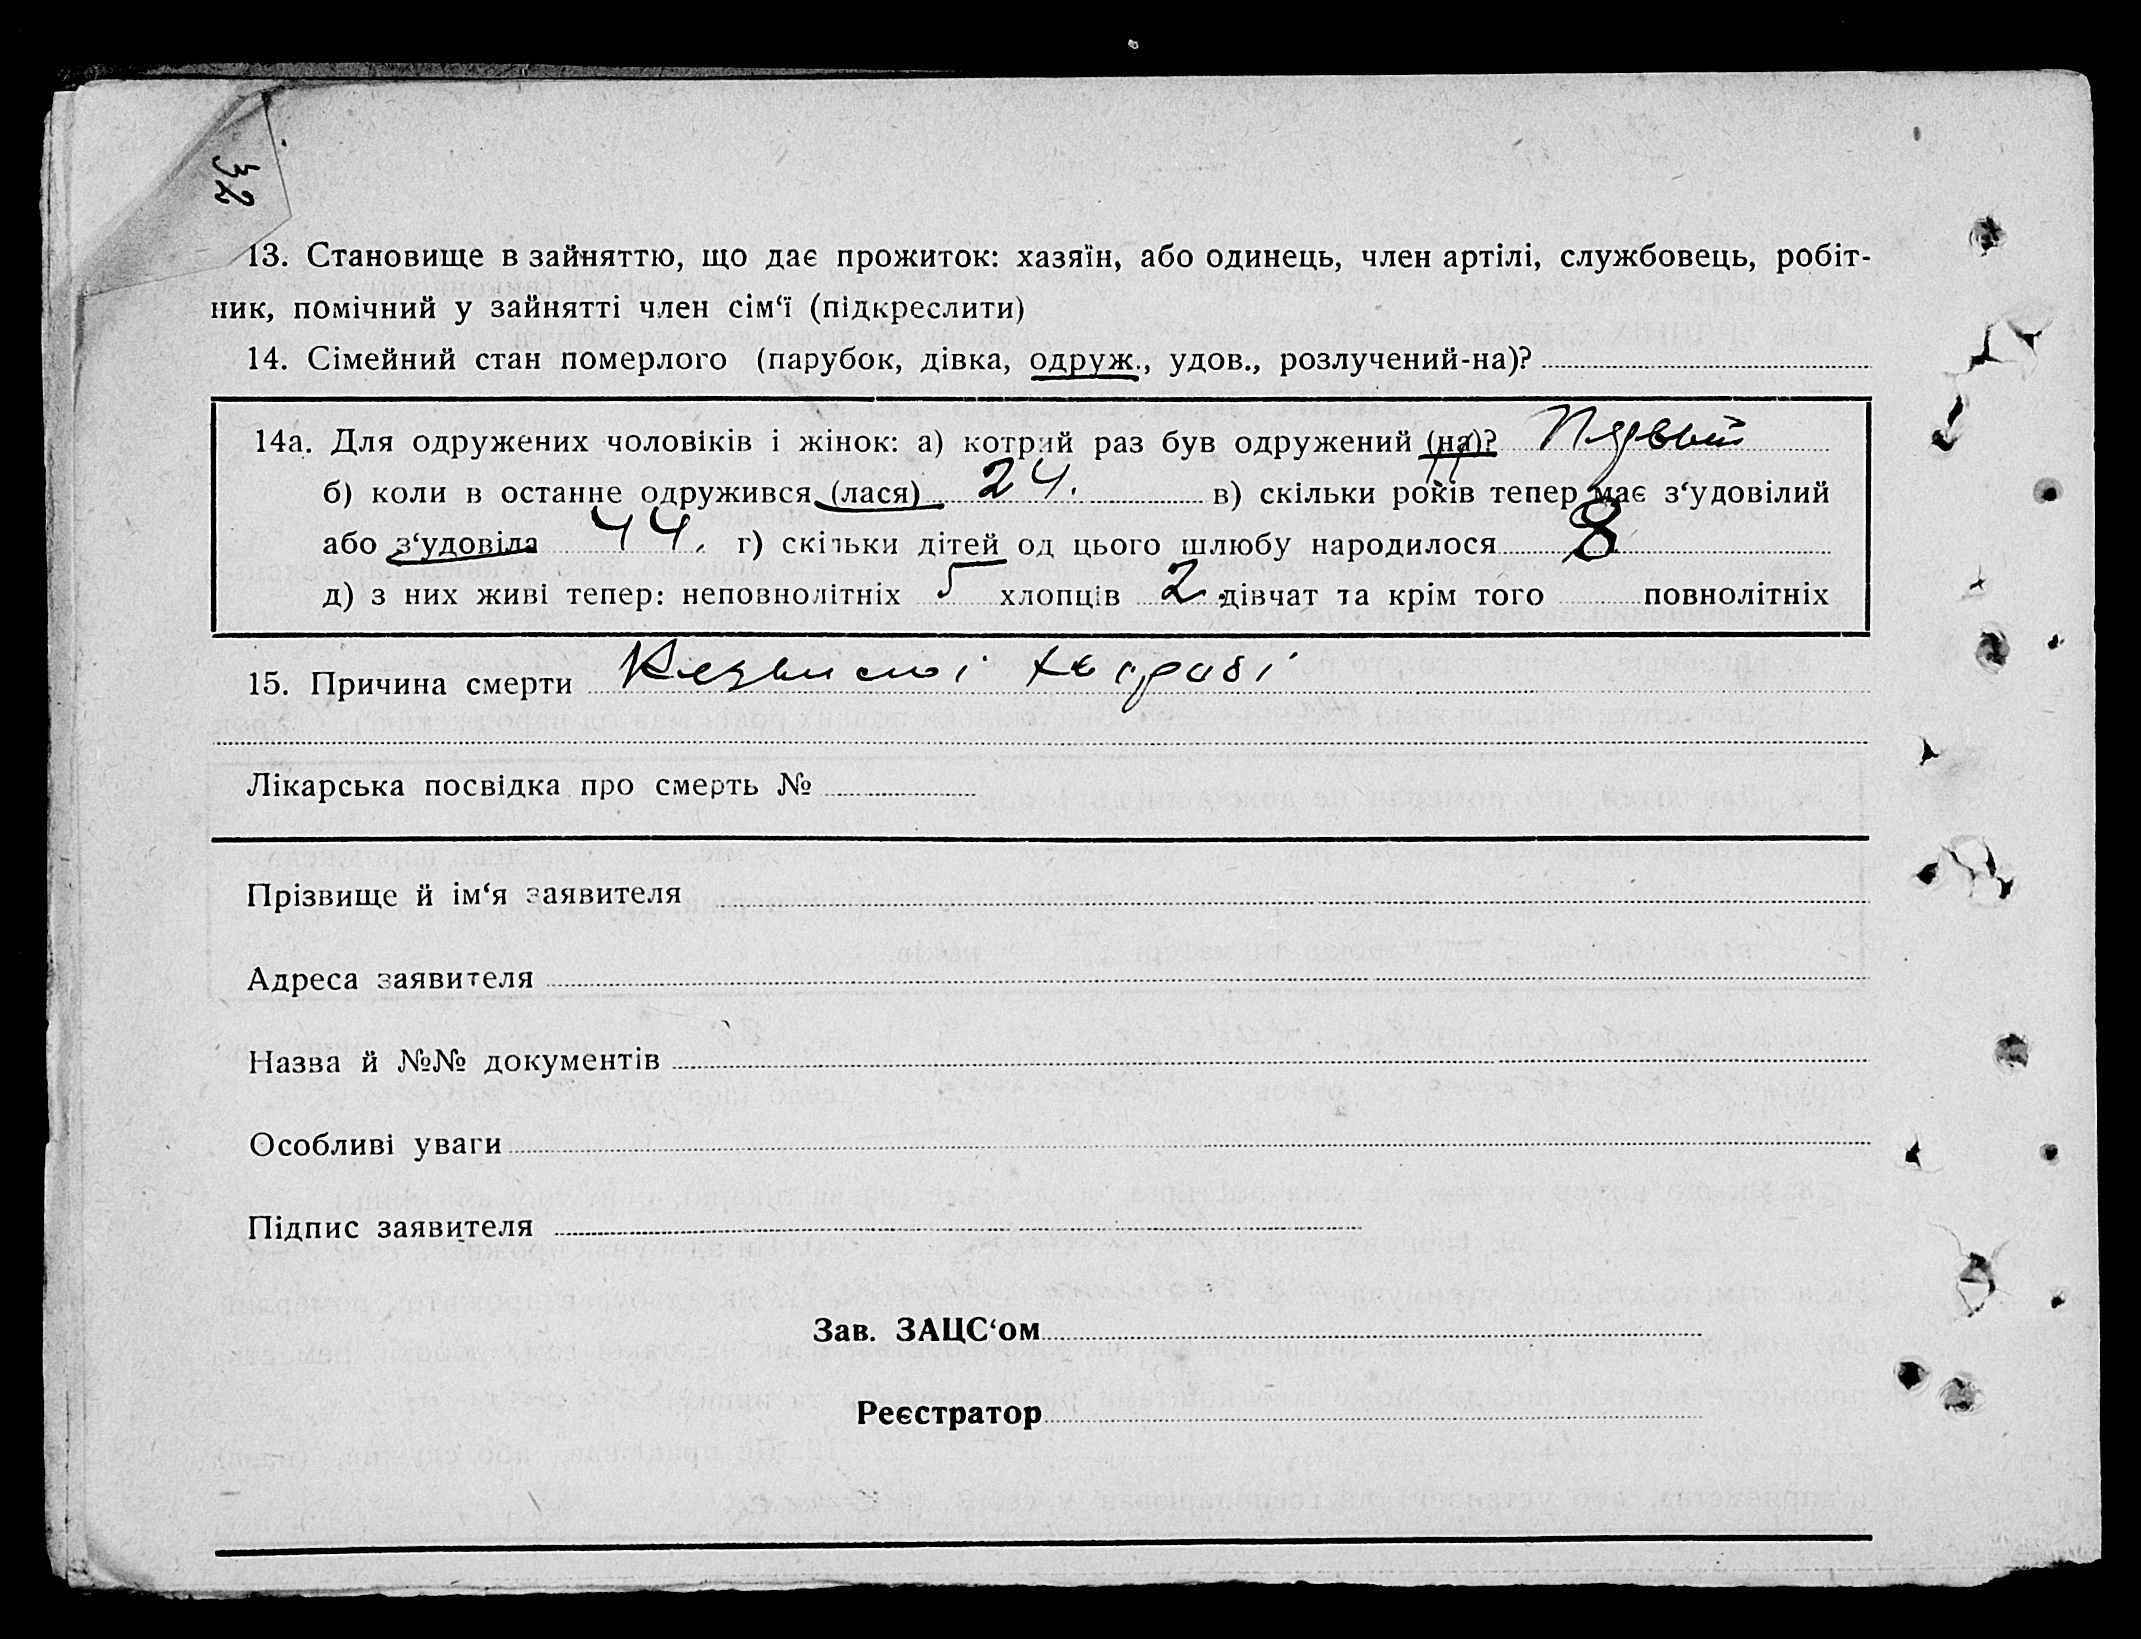 32
13. Становище в зайняттю, що дає прожиток: хазяїн, або одинець, член артілі, службовець, робіт-
ник, помічний у зайнятті член сім‘ї (підкреслити)
14. Сімейний стан померлого (парубок, дівка, одруж., удов., розлучений-на)?
14а. Для одружених чоловіків і жінок: а) котрий раз був одружений (на)? Первый
б) коли в останнє одружився (лася) 24. в) скільки років тепер має з‘удовілий
або з‘удовіла 44. г) скільки дітей од цього шлюбу народилося 8
д) з них живі тепер: неповнолітніх 5 хлопців 2 дівчат та крім того повнолітніх
15. Причина смерти
Лікарська посвідка про смерть №
Прізвище й ім‘я заявителя
Адреса заявителя
Назва й №№ документів
Особливі уваги
Підпис заявителя
Зав. ЗАЦС‘ом
Реєстратор